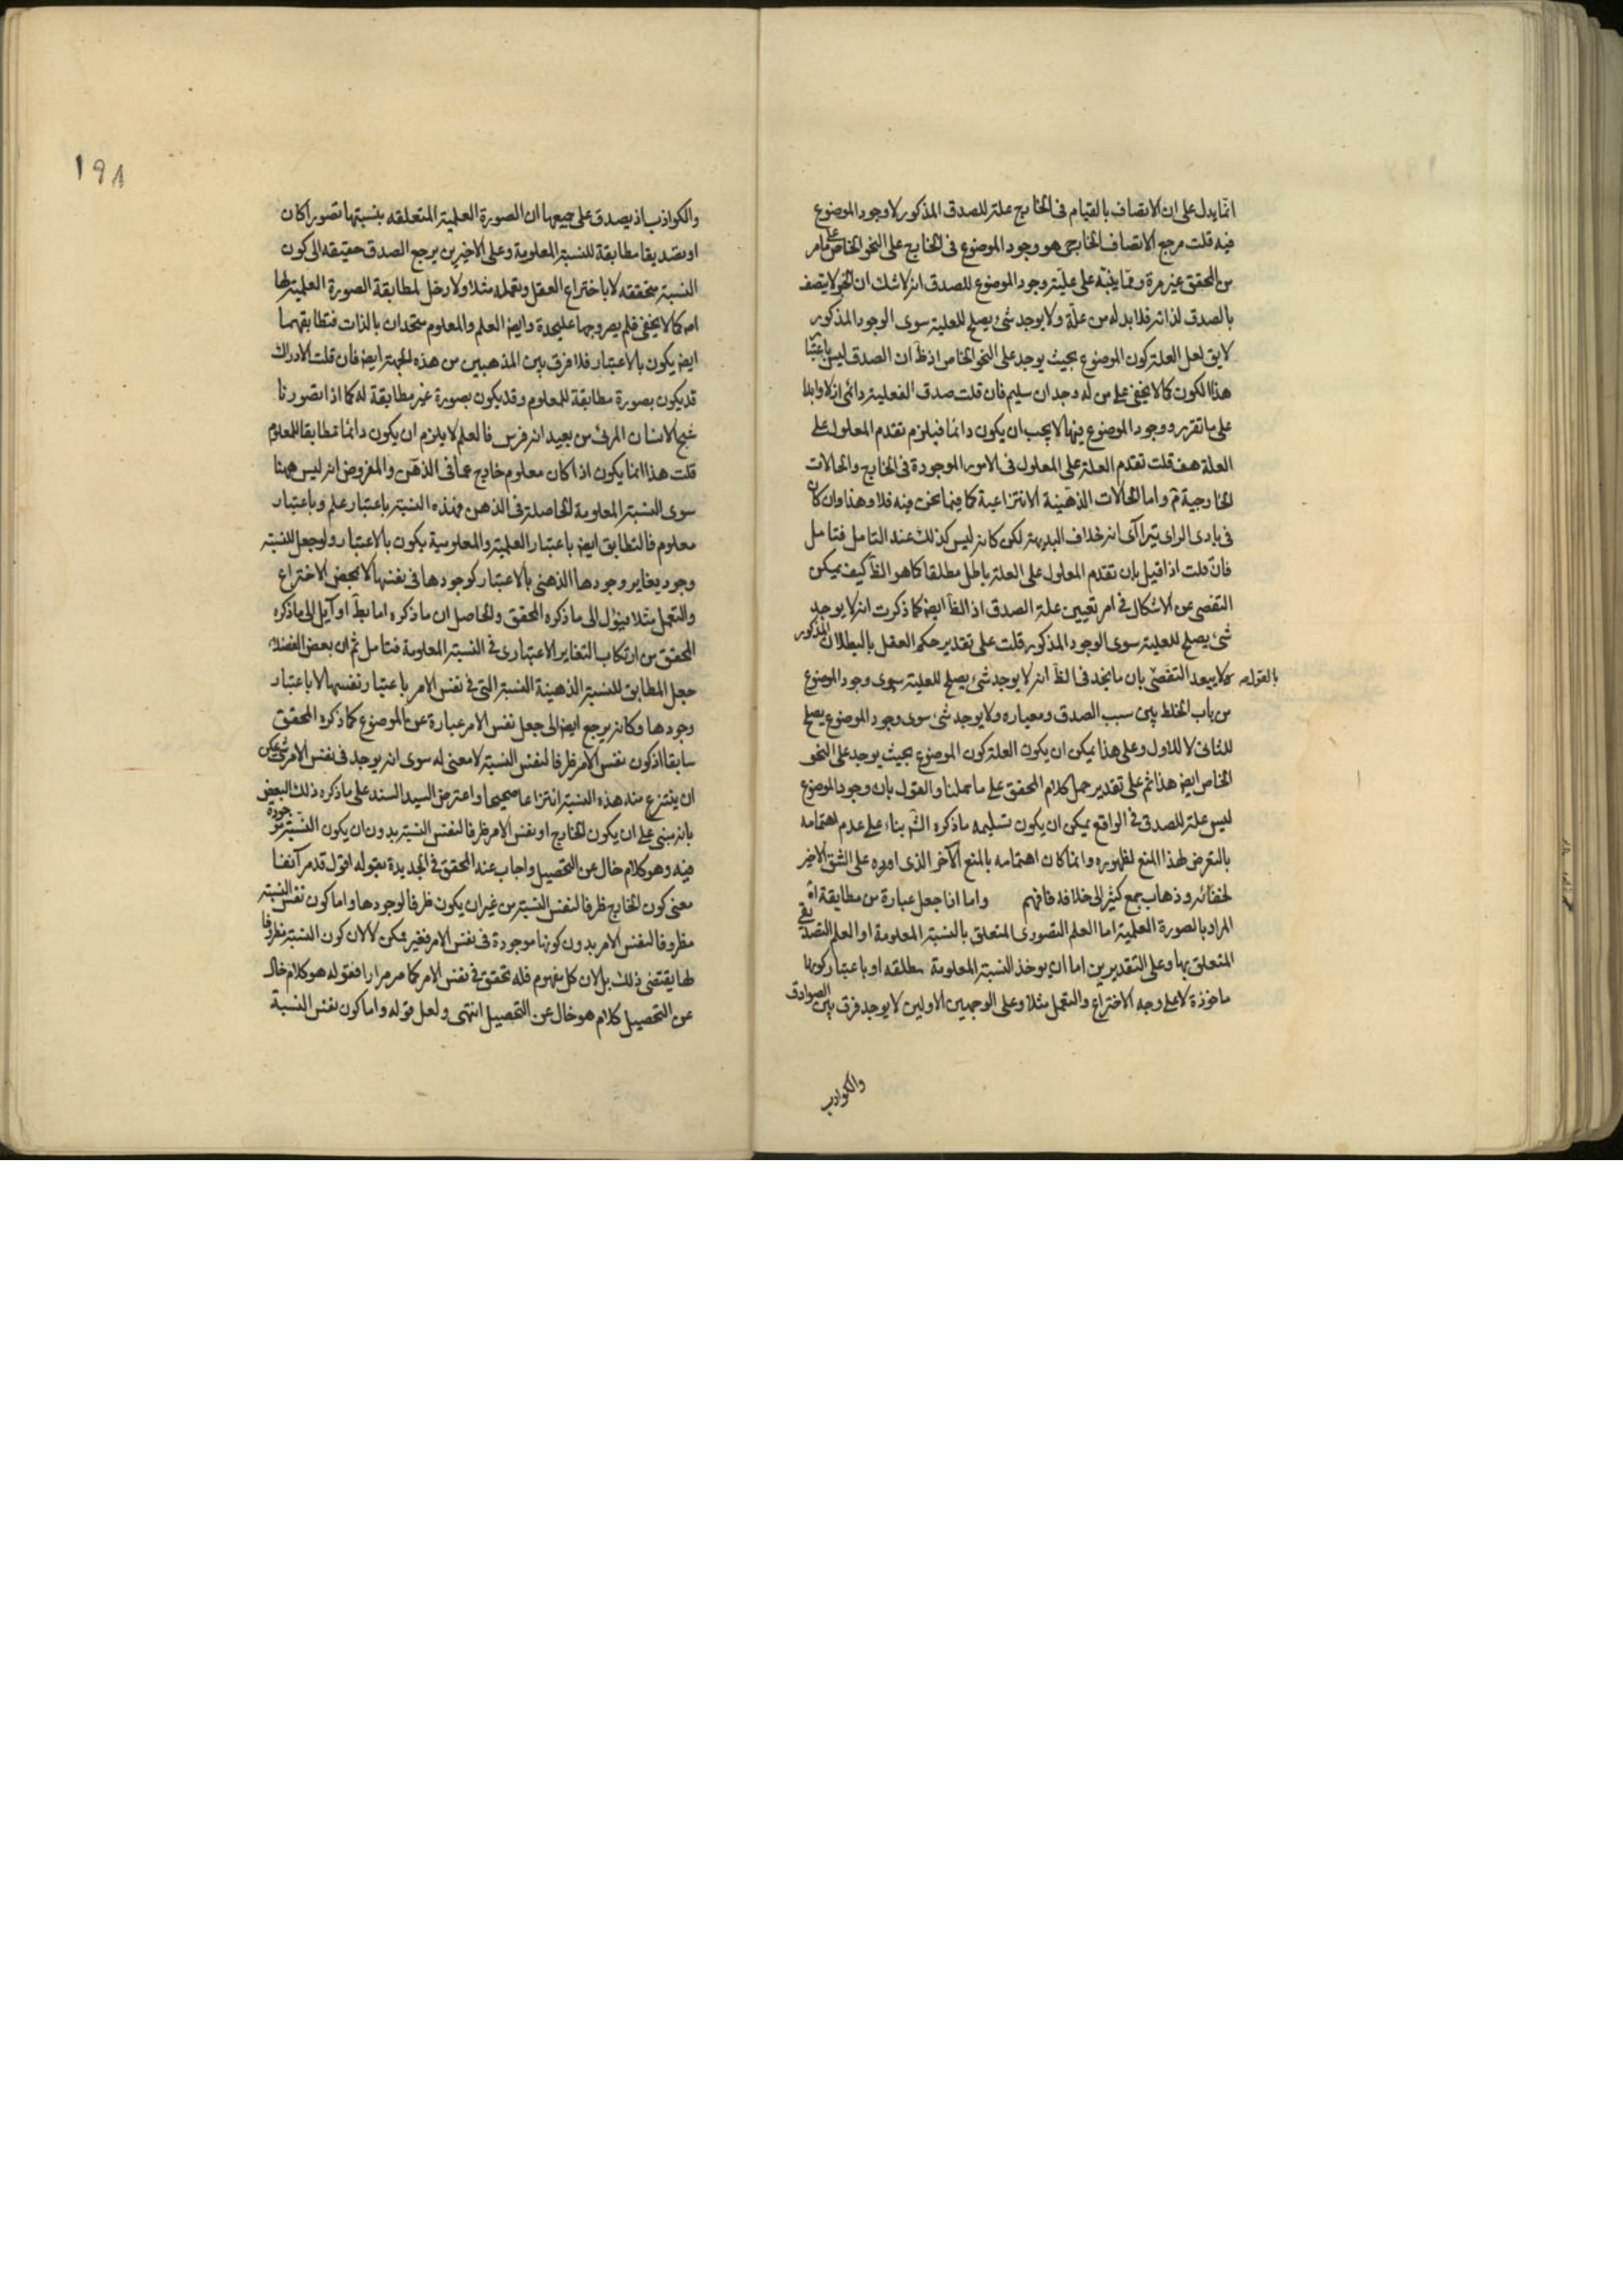 انما يدل على ان الاتصاف بالقيام فى الخارج علة للصدق المذكور لا وجود الموضوع
فيه قلت مرجع الاتصاف الخارجى هو وجود الموضوع فى الخارج على النحو الخاص على ما مر
من المحقق غير مرة ومما ينبه على علية وجود الموضوع للصدق انه لا شك ان الخبر لا يتصف
بالصدق لذاته فلا بد له من علة ولا يوجد شئ يصلح للعلية سوى الوجود المذكور
لا يق لعل العلة كون الموضوع بحيث يوجد على النحو الخاص اذ ظ ان الصدق ليس باعتبار
هذا الكون كما لا يخفى على من له وجدان سليم فان قلت صدق الفعلية دائمى ازلا وابدا
على ما تقرر ووجود الموضوع فيها لا يجب ان يكون دائما فيلزم تقدم المعلول على
العلة هف قلت تقدم العلة على المعلول فى الامور الموجودة فى الخارج والحالات
الخارجية ثم واما الحالات الذهنية الانتزاعية كما فيما نحن فيه فلا وهذا وان كان
فى بادى الراى يترا آى انه خلاف البديهة لكن كانه ليس كذلك عند التامل فتامل
فان قلت اذا قيل بان تقدم المعلول على العلة باطل مطلقا كما هو الظ كيف يمكن
التفصى عن الاشكال فى امر تعيين علة الصدق اذ الظ ايضا كما ذكرت انه لا يوجد
شئ يصلح للعلية سوى الوجود المذكور قلت على تقدير حكم العقل بالبطلان المذكور
بالقول به لا يبعد التفصى بان ما نجد فى الظ انه لا يوجد شئ يصلح للعلية سوى وجود الموضوع
من باب الخلط بين سبب الصدق ومعياره ولا يوجد شئ سوى وجود الموضوع يصلح
للثانى لا للاول وعلى هذا يمكن ان يكون العلة كون الموضوع بحيث يوجد على النحو
الخاص ايضا هذا ثم على تقدير حمل كلام المحقق على ما حملنا والقول بان وجود الموضوع
ليس علة للصدق فى الواقع يمكن ان يكون تسليمه ما ذكره الش بناء على عدم اهتمامه
بالتعرض لهذا المنع لظهوره وانما كان اهتمامه بالمنع الآخر الذى اورده على الشق الاخير
لخفائه وذهاب جمع كثير الى خلافه فافهم واما اذا جعل عبارة من مطابقة اه
المراد بالصورة العلمية اما العلم التصورى المتعلق بالنسبة المعلومة او العلم التصديقى
المتعلق بها وعلى التقديرين اما ان يوخذ النسبة المعلومة مطلقه او باعتبار كونها
ماخوذة لا على وجه الاختراع والتعمل مثلا وعلى الوجهين الاولين لا يوجد فرق بين الصوادق
والكواذب
١٩٨
والكواذب اذ يصدق على جميعها ان الصورة العلمية المتعلقه بنسبتها تصورا كان
او تصديقا مطابقة للنسبة المعلومة وعلى الاخيرين يرجع الصدق حقيقه الى كون
النسبة متحققه لا باختراع العقل وتعمله مثلا ولا دخل لمطابقة الصورة العلمية لها
اه كما لا يخفى فلم يصر وجها عليحدة وايضا العلم والمعلوم متحدان بالذات فتطابقهما
ايضا يكون بالاعتبار فلا فرق بين المذهبين من هذه الجهة ايضا فان قلت الادراك
قد يكون بصورة مطابقة للمعلوم وقد يكون بصورة غير مطابقة له كما اذا تصورنا
شبح الانسان المرئى من بعيد انه فرس فالعلم لا يلزم ان يكون دائما مطابقا للمعلوم
قلت هذا انما يكون اذا كان معلوم خارج عما فى الذهن والمفروض انه ليس ههنا
سوى النسبة المعلومة الحاصلة فى الذهن فهذه النسبة باعتبار علم وباعتبار
معلوم فالتطابق ايضا باعتبار العلمية والمعلومية يكون بالاعتبار ولو جعل للنسبة
وجود يغاير وجودها الذهنى بالاعتبار كوجودها فى نفسها لا بمحض الاختراع
والتعمل مثلا فيؤل الى ما ذكره المحقق والحاصل ان ما ذكره اما بط او آيل الى ما ذكره
المحقق من ارتكاب التغاير الاعتبارى فى النسبة المعلومة فتامل ثم ان بعض الفضلاء
جعل المطابق للنسبة الذهنية النسبة التى فى نفس الامر باعتبار نفسها لا باعتبار
وجودها وكانه يرجع ايضا الى جعل نفس الامر عبارة عن الموضوع كما ذكره المحقق
سابقا اذ كون نفس الامر ظرفا لنفس النسبة لا معنى له سوى انه يوجد فى نفس الامر شئ يمكن
ان ينتزع منه هذه النسبة انتزاعا صحيحا واعترض السيد السند على ما ذكره ذلك البعض
بانه مبنى على ان يكون الخارج او نفس الامر ظرفا لنفس النسبة بدون ان يكون النسبة موجودة
فيه وهو كلام خال عن التحصيل واجاب عنه المحقق فى الجديدة بقوله اقول قد مر آنفا
معنى كون الخارج ظرفا لنفس النسبة من غير ان يكون ظرفا لوجودها واما كون نفس النسبة
مظروفا لنفس الامر بدون كونها موجودة فى نفس الامر فغير ممكن لا لان كون النسبة مظروفا
لها يقتضى ذلك بل لان كل مفهوم فله تحقق فى نفس الامر كما مر مرارا فقوله هو كلام خال
عن التحصيل كلام هو خال عن التحصيل انتهى ولعل قوله واما كون نفس النسبة